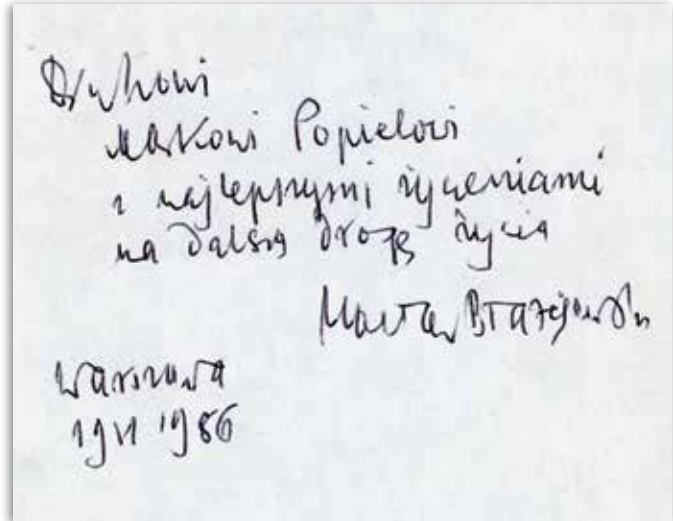 Druhowi
Markowi Popielowi
z najlepszymi życzeniami
na dalszą drogę życia
Wacław Błażejewski
Warszawa
19 VI 1986